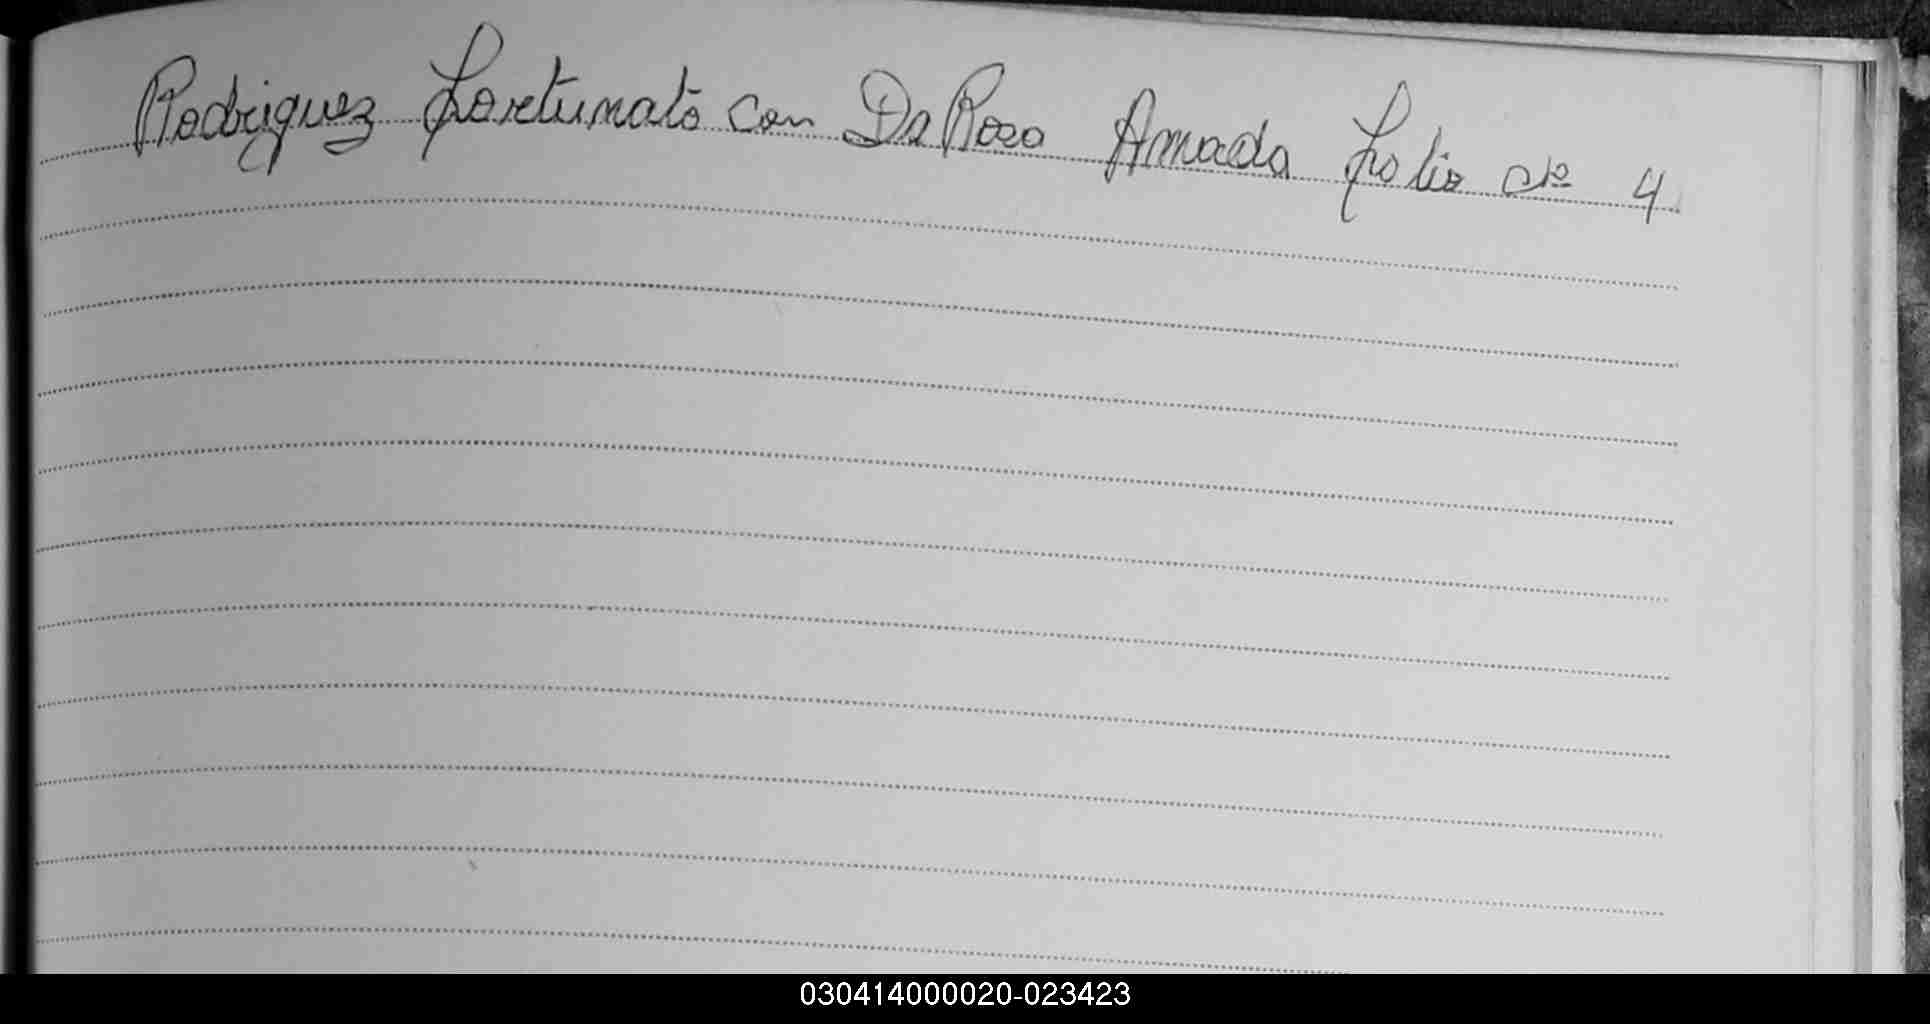 Rodriguez Fortunato con Da Rosa Amada Folio Nº 4
030414000020-023423